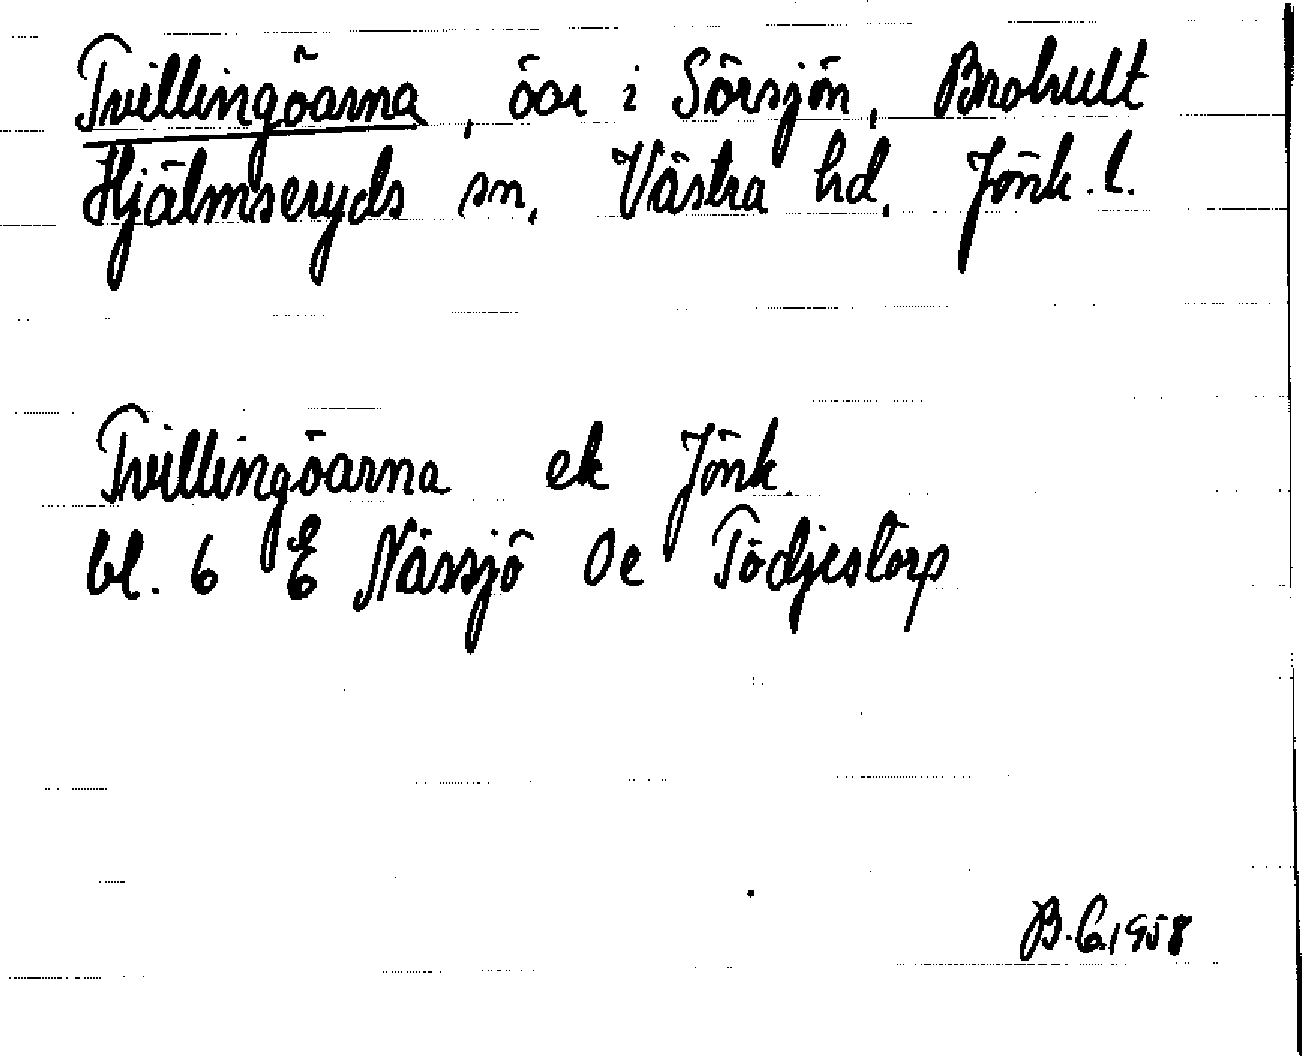 Tvillingöarna, öar i Sörsjön, Brohult
Hjälmseryds sn, Västra hd, Jönk. l.
Tvillingöarna ek Jönk.
bl. 6 E Nässjö 0e Tödjestorp
B.G.1958